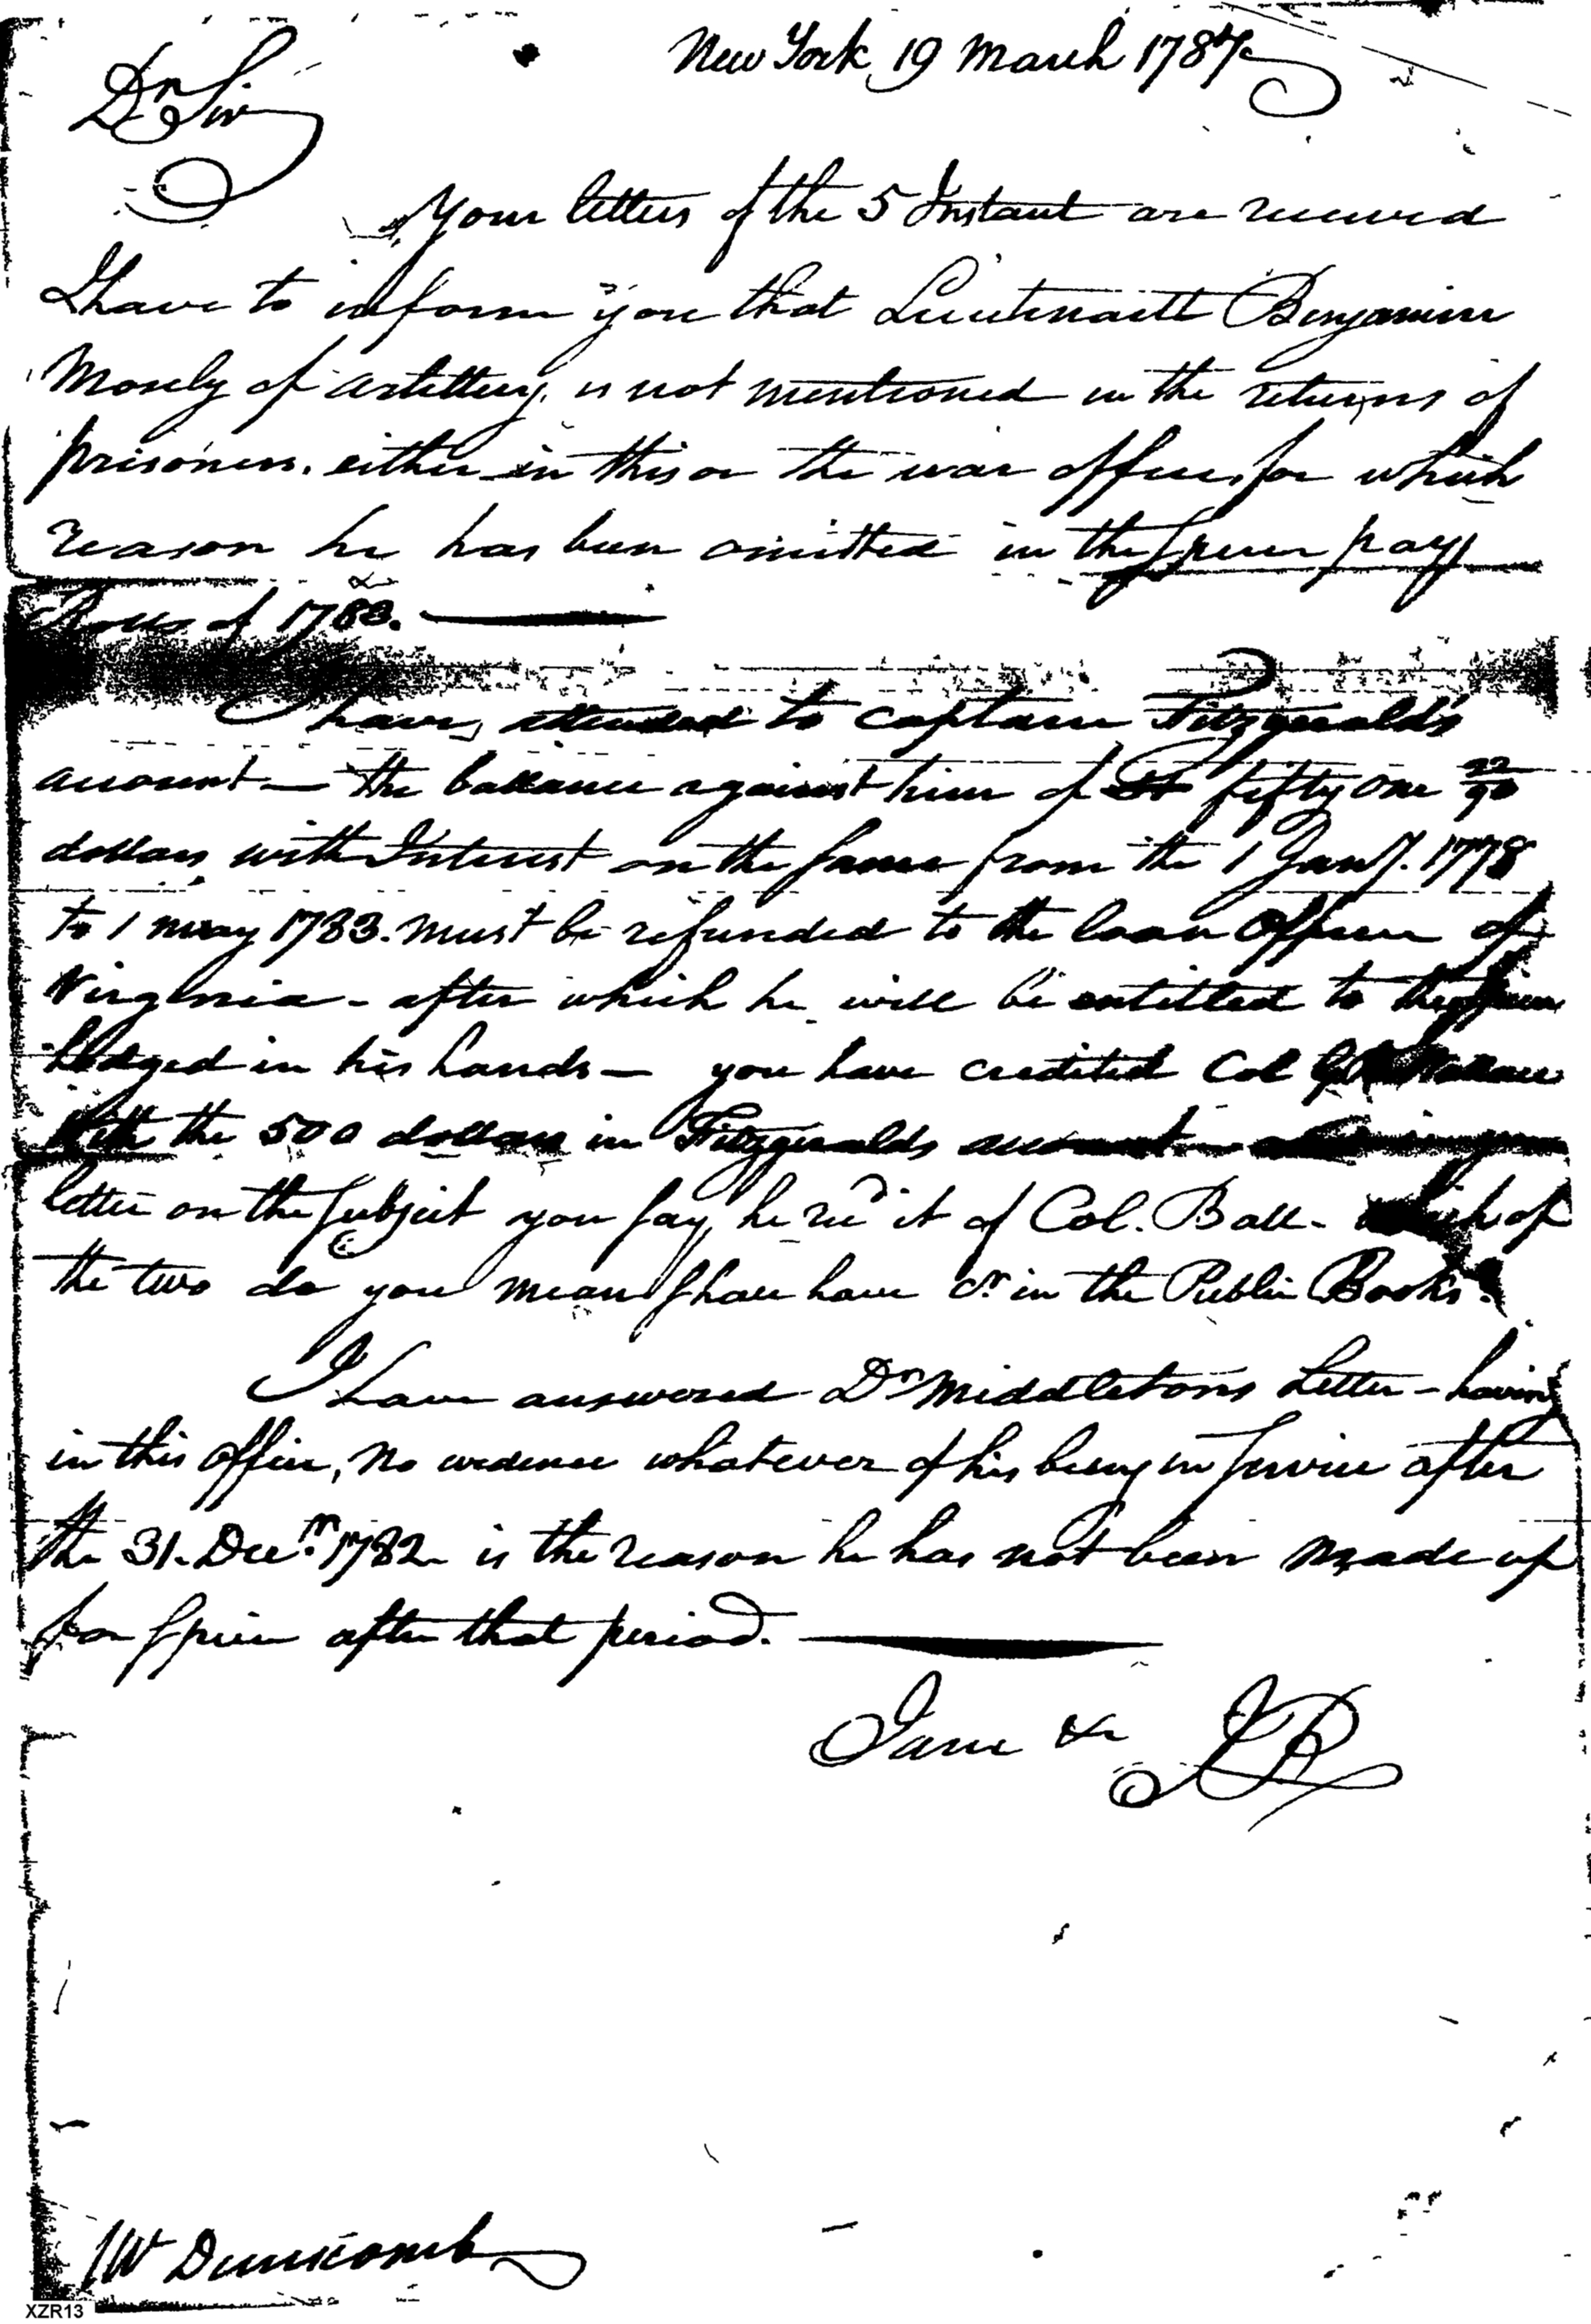 New York 19 March 1787
Dr Sir
Your letters of the 5 Instant are received
I have to inform you that Lieutenant Benjamin
Mosely of artillery, is not mentioned in the returns of
prisoners. either in this or the war office, for which
reason he has been omitted in the specie pay
Rolls of 1783.
I have attended to Captain Fitzgerald's
account — the ballance against him of fifty one 22/90
dollars with Interest on the same from the 1 Jany. 1778
to 1 may 1783. must be refunded to the loan Officer of
Virginia - after which he will be entitled to the
lodged in his hands — you have credited Col Wallace
With the 500 dollars in Fitzgeralds account
letter on the subject you say, he recd it of Col. Ball - which of
the two do you mean shall have Cr. in the Public Books?
I have answered Dr Middletons Letter - having
in this office, no evidence whatever of his being in service after
the 31. Decemr. 1782 is the reason he has not been made up
for specie after that period.
I am &c JP
Mr Dunscomb
XZR13